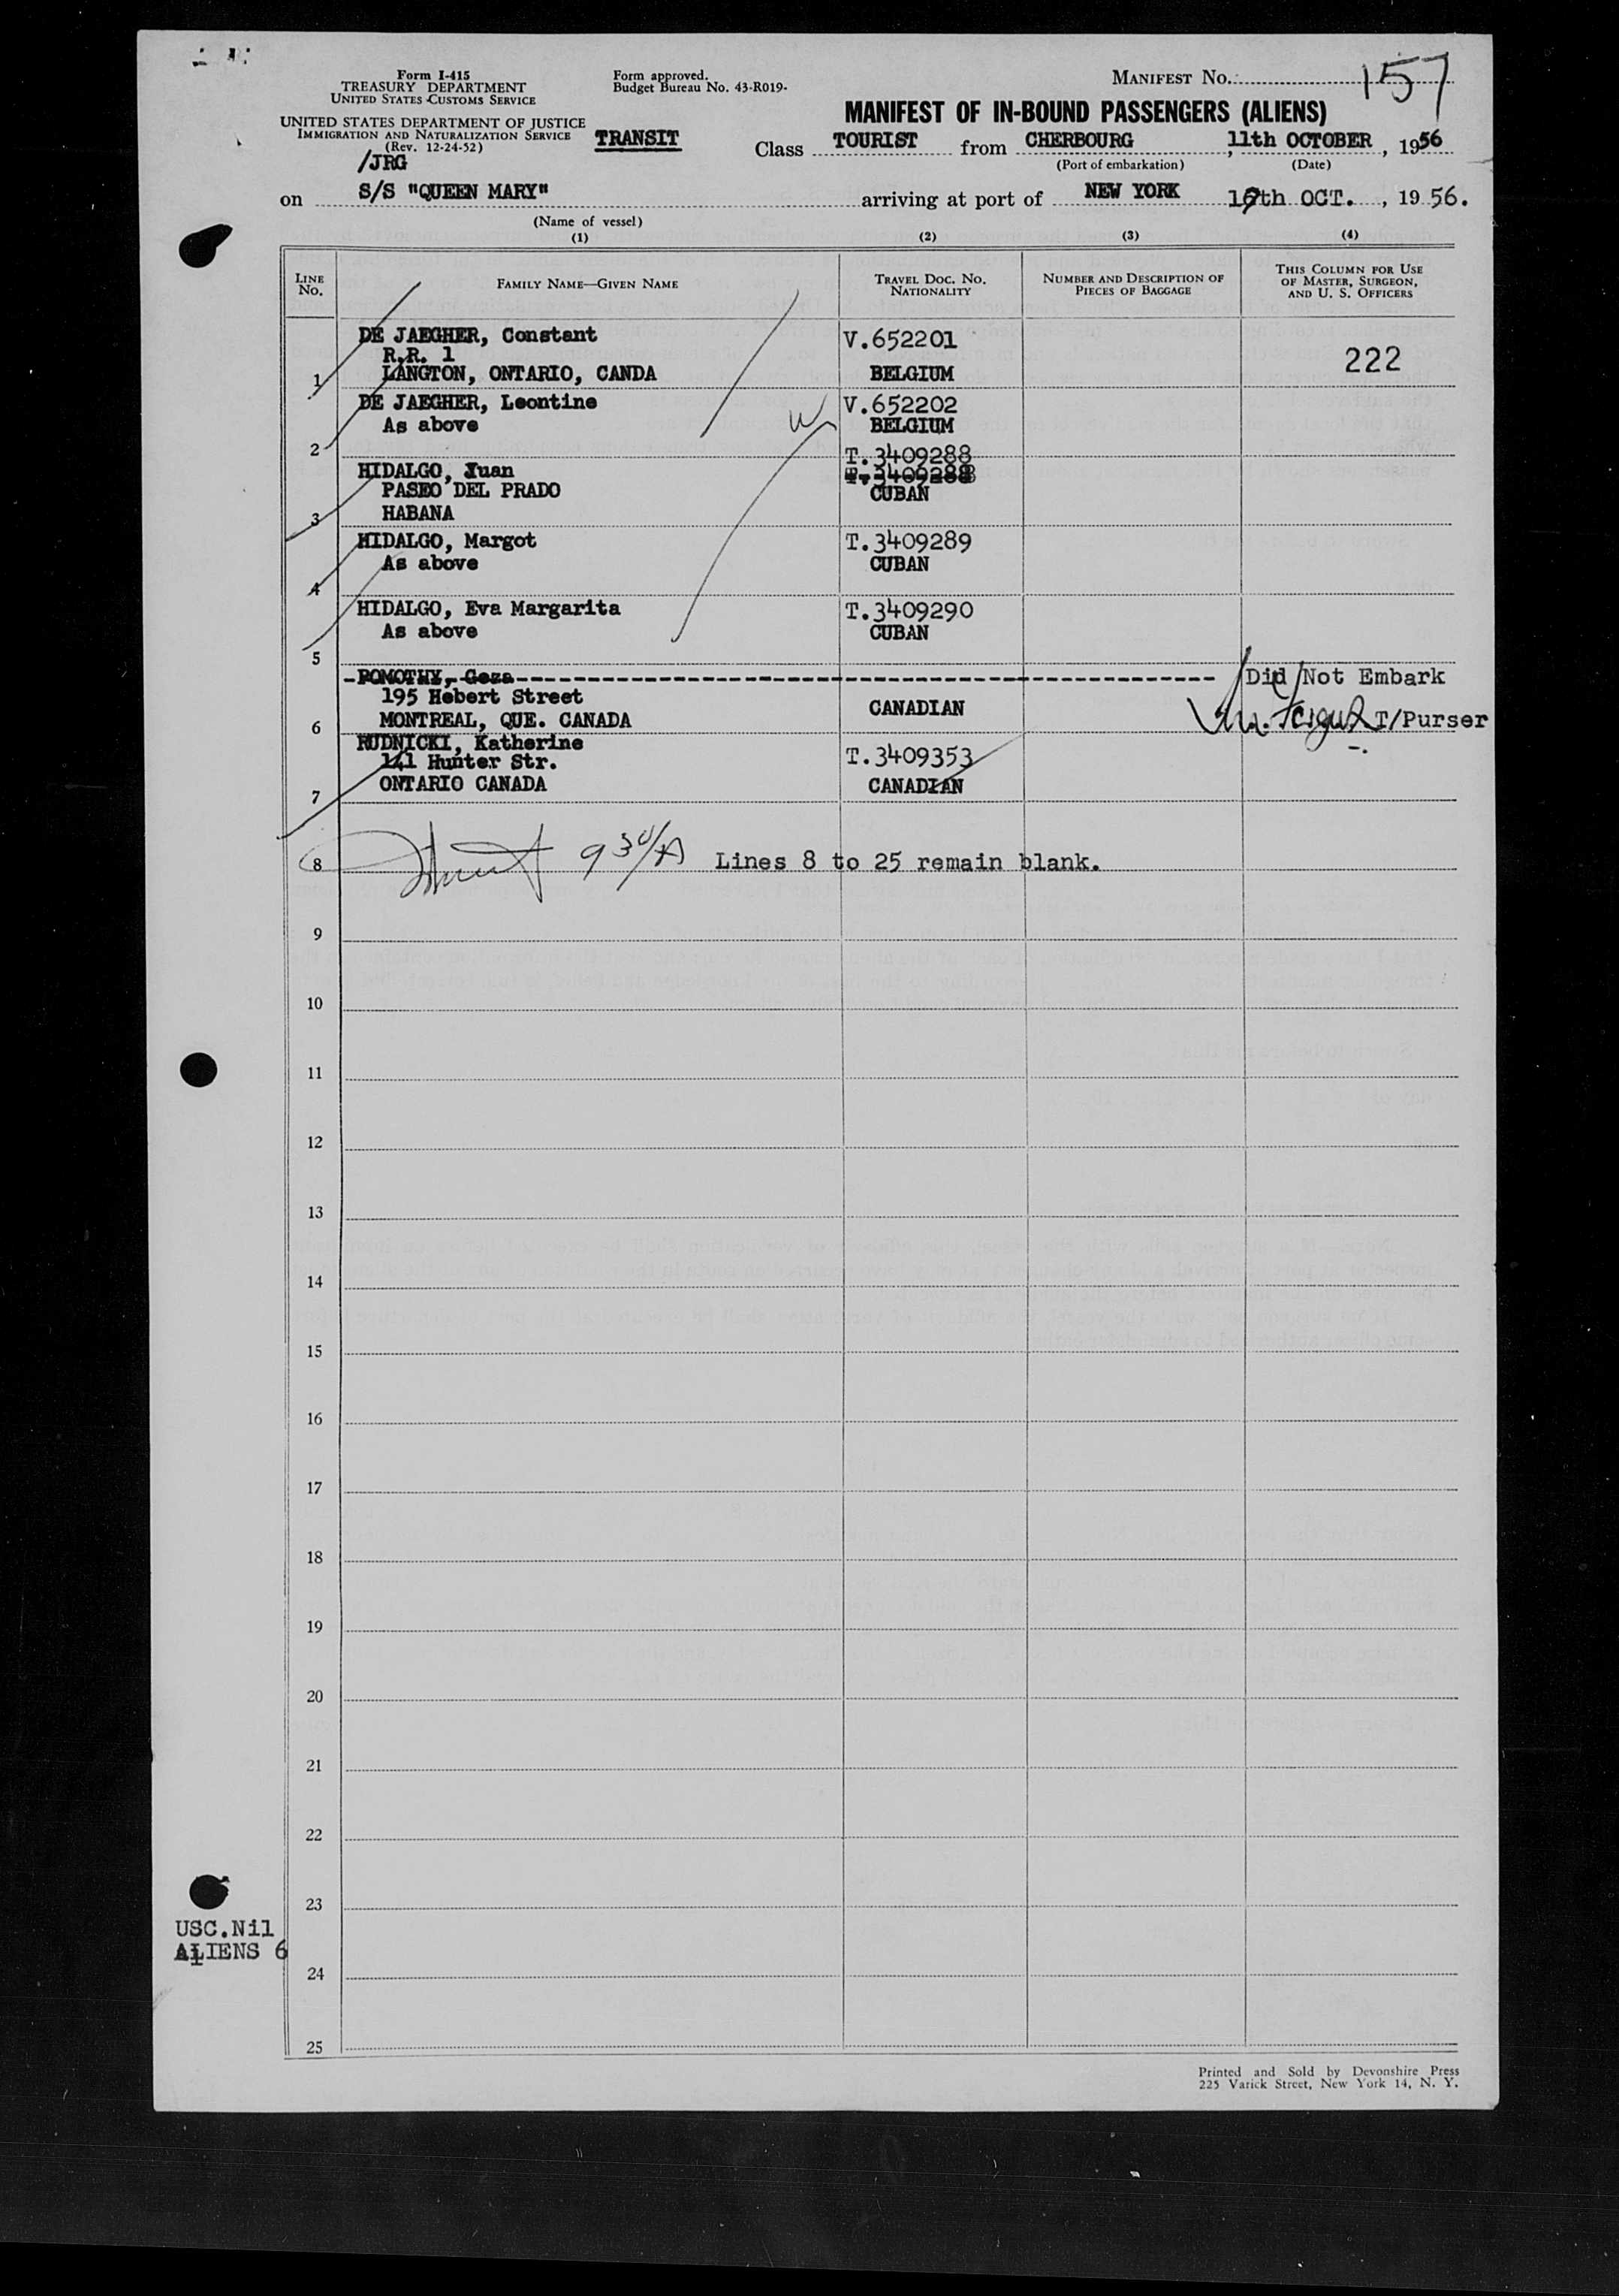 Form I-415
TREASURY DEPARTMENT
UNITED STATES CUSTOMS SERVICE
UNITED STATES DEPARTMENT OF JUSTICE
IMMIGRATION AND NATURALIZATION SERVICE
(Rev. 12-24-52)
/JRG
TRANSIT
Form approved.
Budget Bureau No. 43-R019-
MANIFEST No. 157
MANIFEST OF IN-BOUND PASSENGERS (ALIENS)
Class TOURIST from CHERBOURG, 11th OCTOBER, 1956
(Port of embarkation) (Date)
on S/S "QUEEN MARY" arriving at port of NEW YORK th OCT., 1956.
(Name of vessel)
(1) (2) (3) (4)
LINE No. FAMILY NAME—GIVEN NAME TRAVEL DOC. NO. NATIONALITY NUMBER AND DESCRIPTION OF PIECES OF BAGGAGE THIS COLUMN FOR USE OF MASTER, SURGEON, AND U. S. OFFICERS
DE JAEGHER, Constant V.652201
R.R. 1 222
1 LANGTON, ONTARIO, CANDA BELGIUM
DE JAEGHER, Leontine V.652202
As above BELGIUM
2 T.3409288
HIDALGO, Juan
PASEO DEL PRADO CUBAN
3 HABANA
HIDALGO, Margot T.3409289
As above CUBAN
4
HIDALGO, Eva Margarita T.3409290
As above CUBAN
5
POMOTHY, Geza Did Not Embark
195 Hebert Street CANADIAN
6 MONTREAL, QUE. CANADA T/Purser
RUDNICKI, Katherine
141 Hunter Str. T.3409353
7 ONTARIO CANADA CANADIAN
8 9 30/A Lines 8 to 25 remain blank.
9
10
11
12
13
14
15
16
17
18
19
20
21
22
23
USC.Nil
ALIENS 6
24
25
Printed and Sold by Devonshire Press
225 Varick Street, New York 14, N. Y.